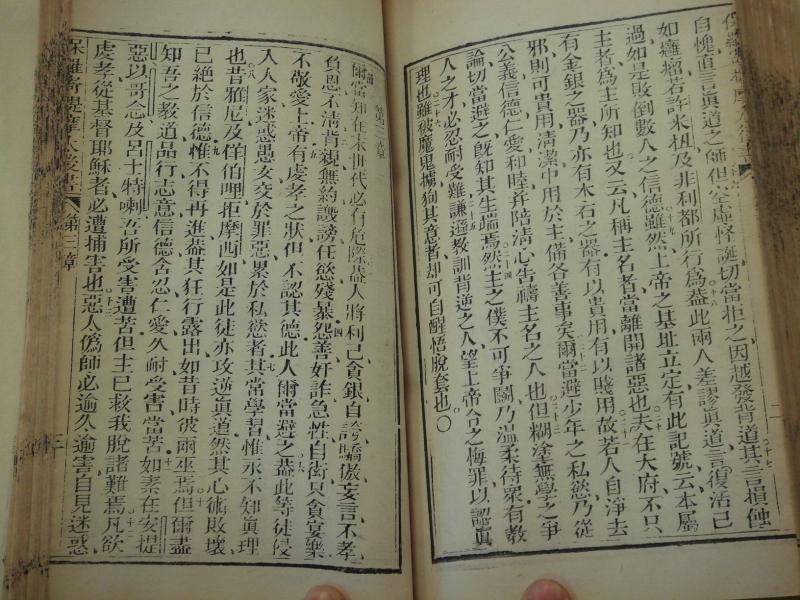 自愧直言眞道之師但空虛怪誕切當拒之因越發背道其言損蝕
如癰瘤若許米紐及非利都所行為蓋此兩人差謬眞道言復活已
過如是敗倒數人之信德雖然上帝之基址立定有此記號云本屬
主者為主所知也又云凡稱主名者當離開諸惡也夫在大府不只
有金銀之器乃亦有木石之器有以貴用有以賤用故若人自淨去
邪則可貴用清潔中用於主備各善事矣爾當避少年之私慾乃從
公義信德仁愛和睦幷陪清心告禱主名之人也但糊塗無學之爭
論切當避之旣知其生端焉然主之僕不可爭鬭乃溫柔待衆有教
人之才必忍耐受難謙遜教訓背逆之人望上帝令之悔罪以認眞
理也雖被魔鬼擄徇其意者却可自醒悟脫套也○
第三章
爾當知在末世代必有危險蓋人將利己貪銀自誇驕傲妄言不孝
負恩不清背親無約譏謗任慾殘暴怨善奸詐急性自衒只貪宴樂
不敬愛上帝有虔孝之狀但不認其德此人爾當避之蓋此等徒侵
入人家迷惑愚女交於罪惡累於私慾者其常學習惟永不知眞理
也昔雅尼及佯伯哩拒摩西如是此徒亦攻逆眞道然其心術敗壞
已絕於信德惟不得再進蓋其狂行露出如昔時彼兩巫焉但爾盡
知吾之教道品行志意信德含忍仁愛久耐受害當苦如素在安提
惡以哥念及呂士特喇吾所受害遭苦但主已救我脫諸難焉凡欲
虔孝從基督耶穌者必遭捕害也惡人偽師必逾久逾害自見迷惑
保羅寄提摩太後書 第三章 三